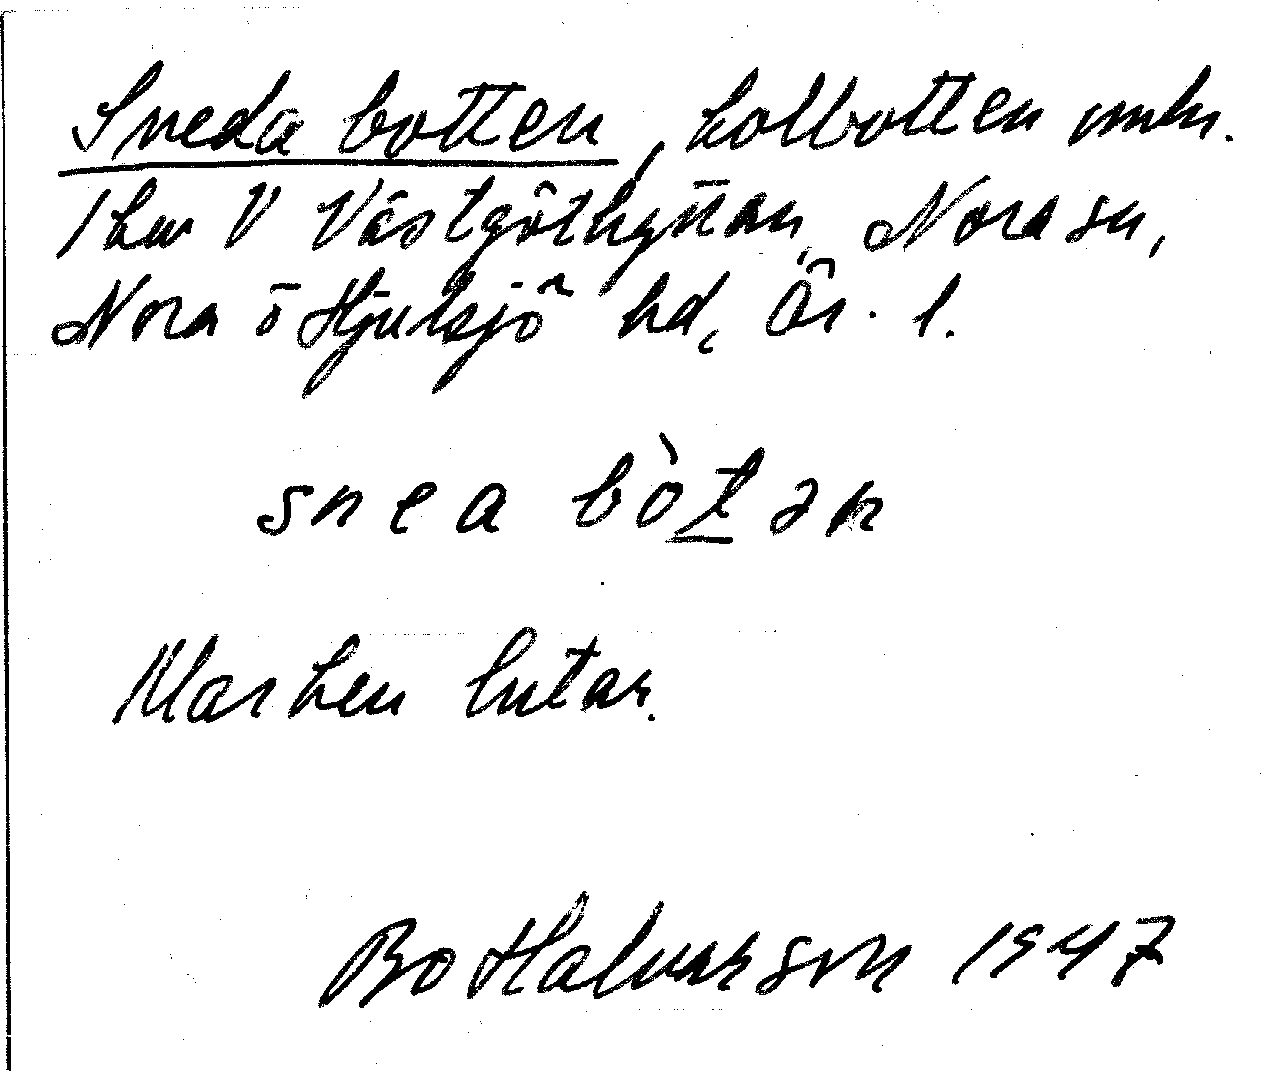 Sneda botten, kolbotten omkr.
1 km V Västgöthyttan, Nora sn,
Nora o Hjulsjö hd, Ör. l.
snea bòtən
Marken lutar.
Bo Halvarson 1947